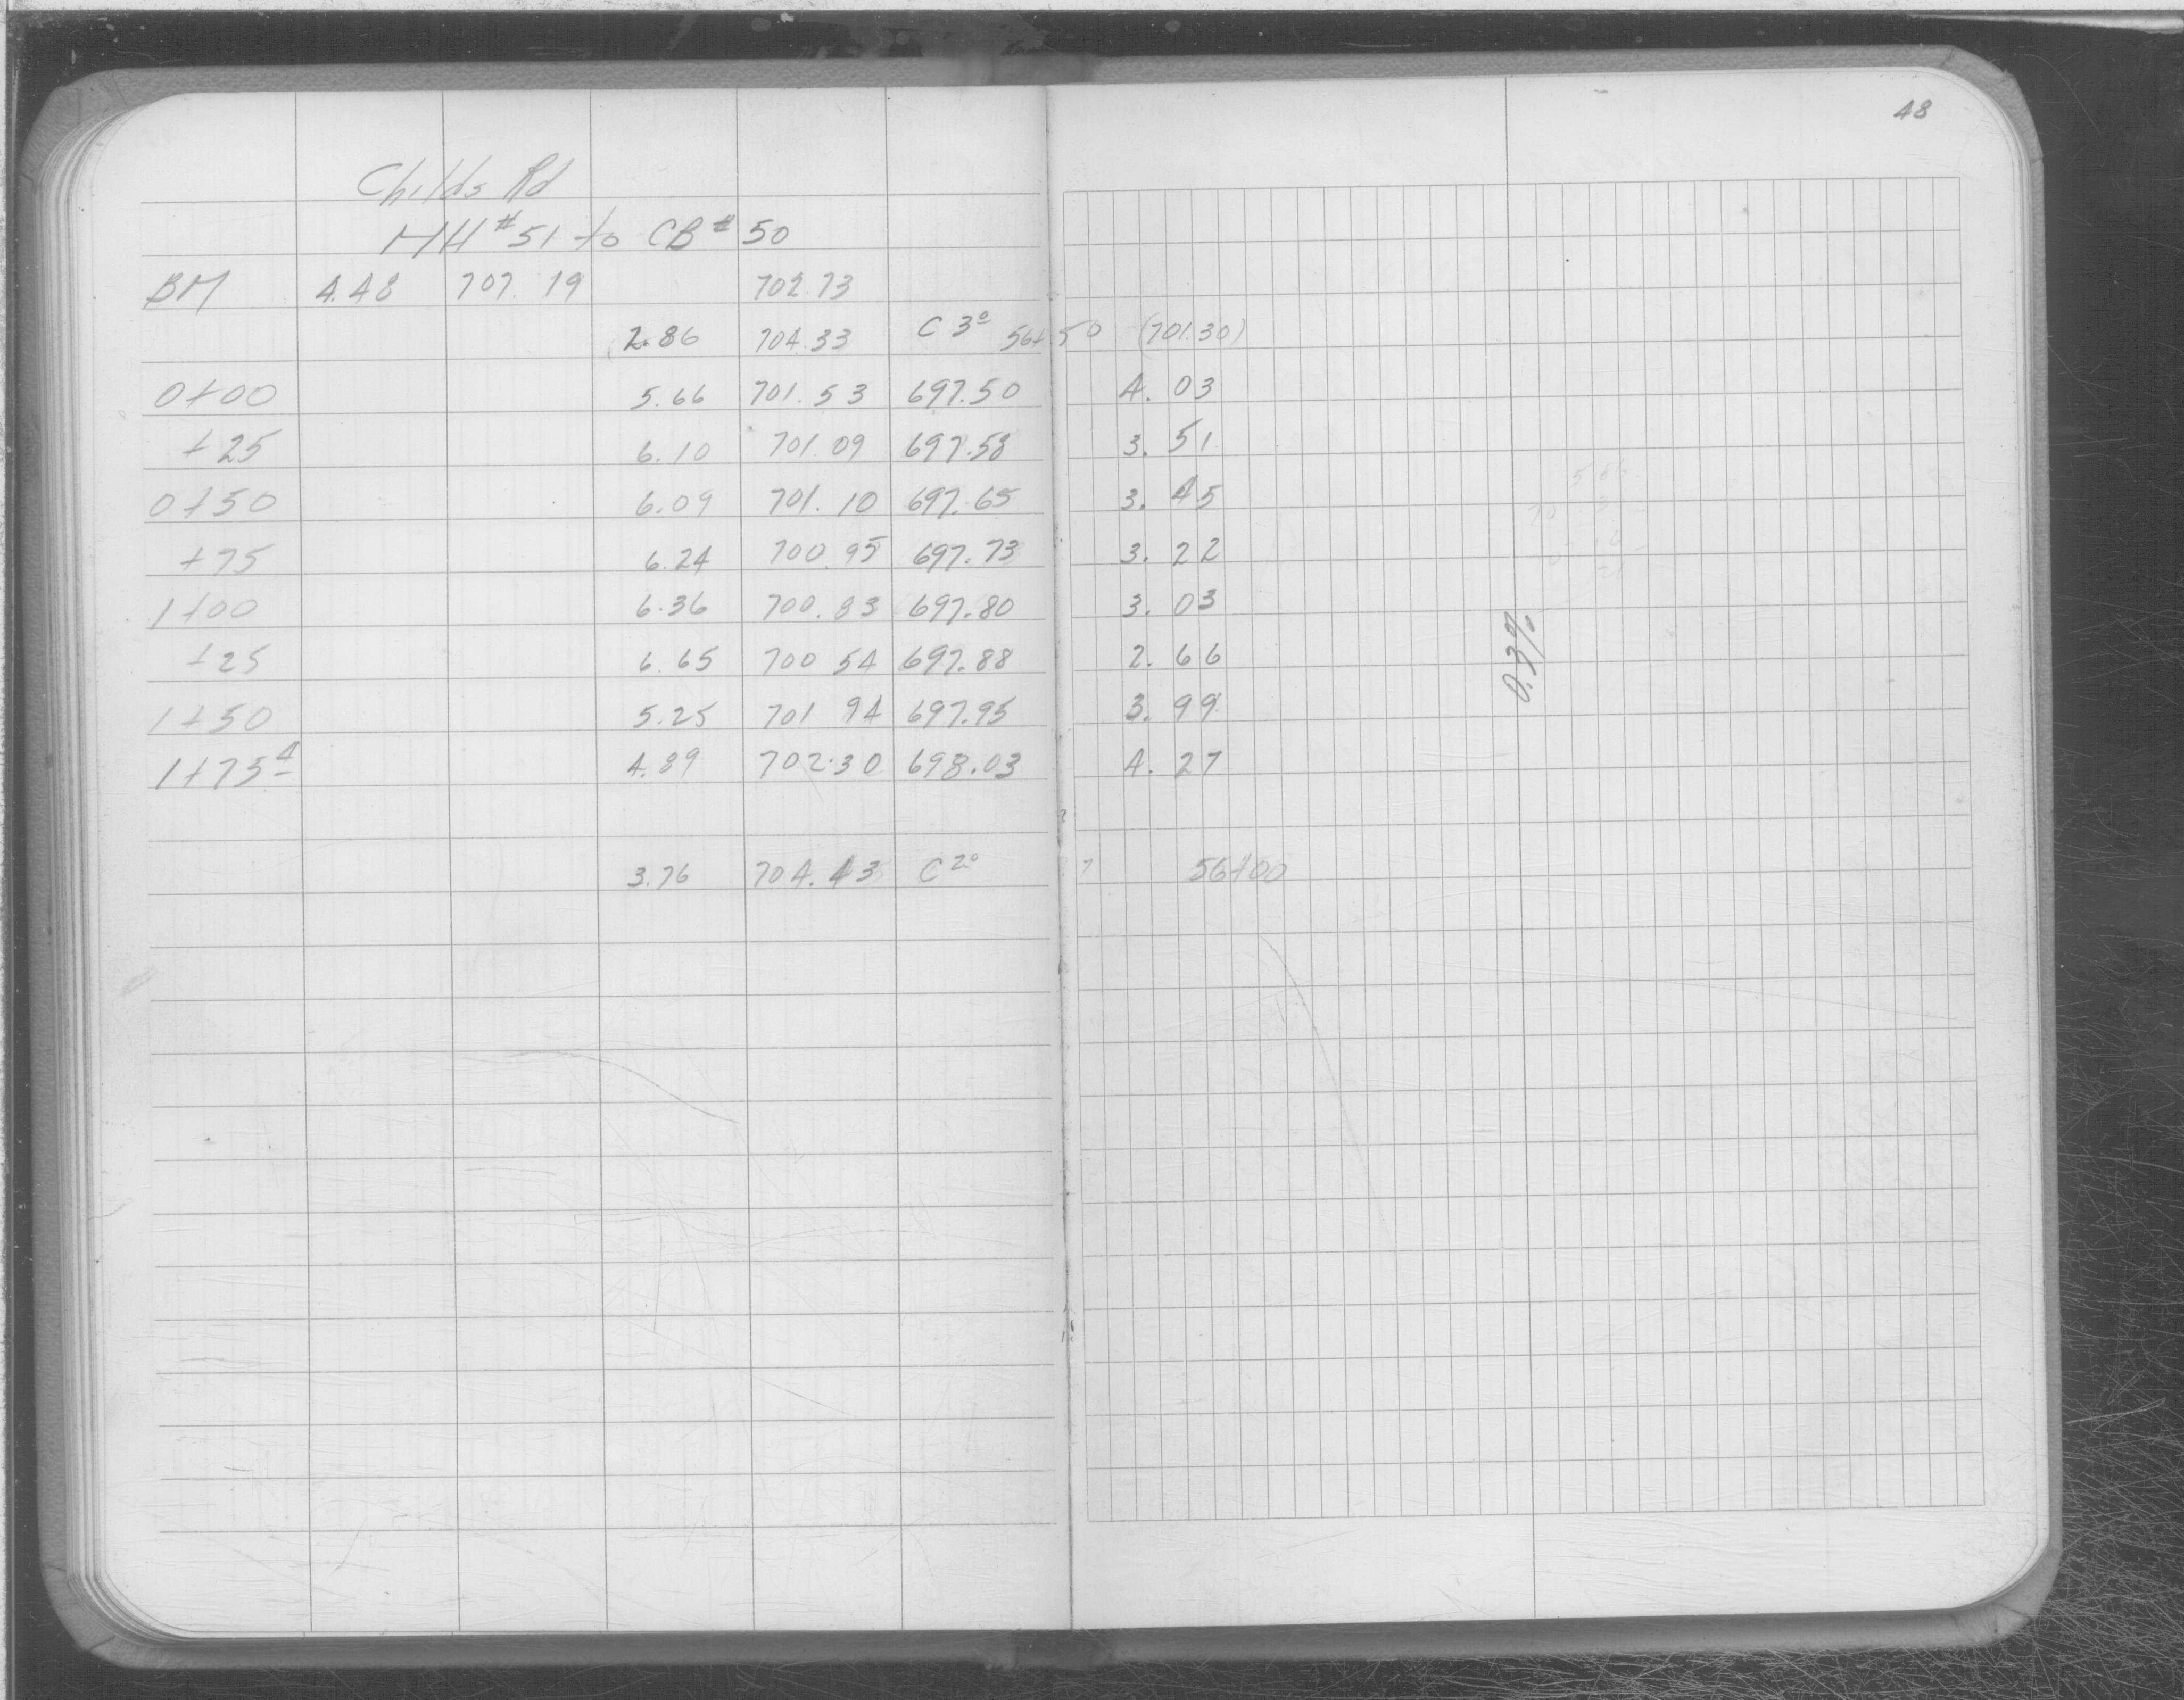 48
Childs Rd
MH #51 to CB #50
BM 4.48 707.19 702.73
2.86 704.33 C 3º 56+50 (701.30)
0+00 5.66 701.53 697.50 4.03
+25 6.10 701.09 697.58 3.51
0+50 6.09 701.10 697.65 3.45
+75 6.24 700.95 697.73 3.22
1+00 6.36 700.83 697.80 3.03
+25 6.65 700 54 697.88 2.66
1+50 5.25 701 94 697.95 3.99
1+75⁴ 4.89 702.30 698.03 4.27
0.3%
3.76 704.43 C 2º 56+00